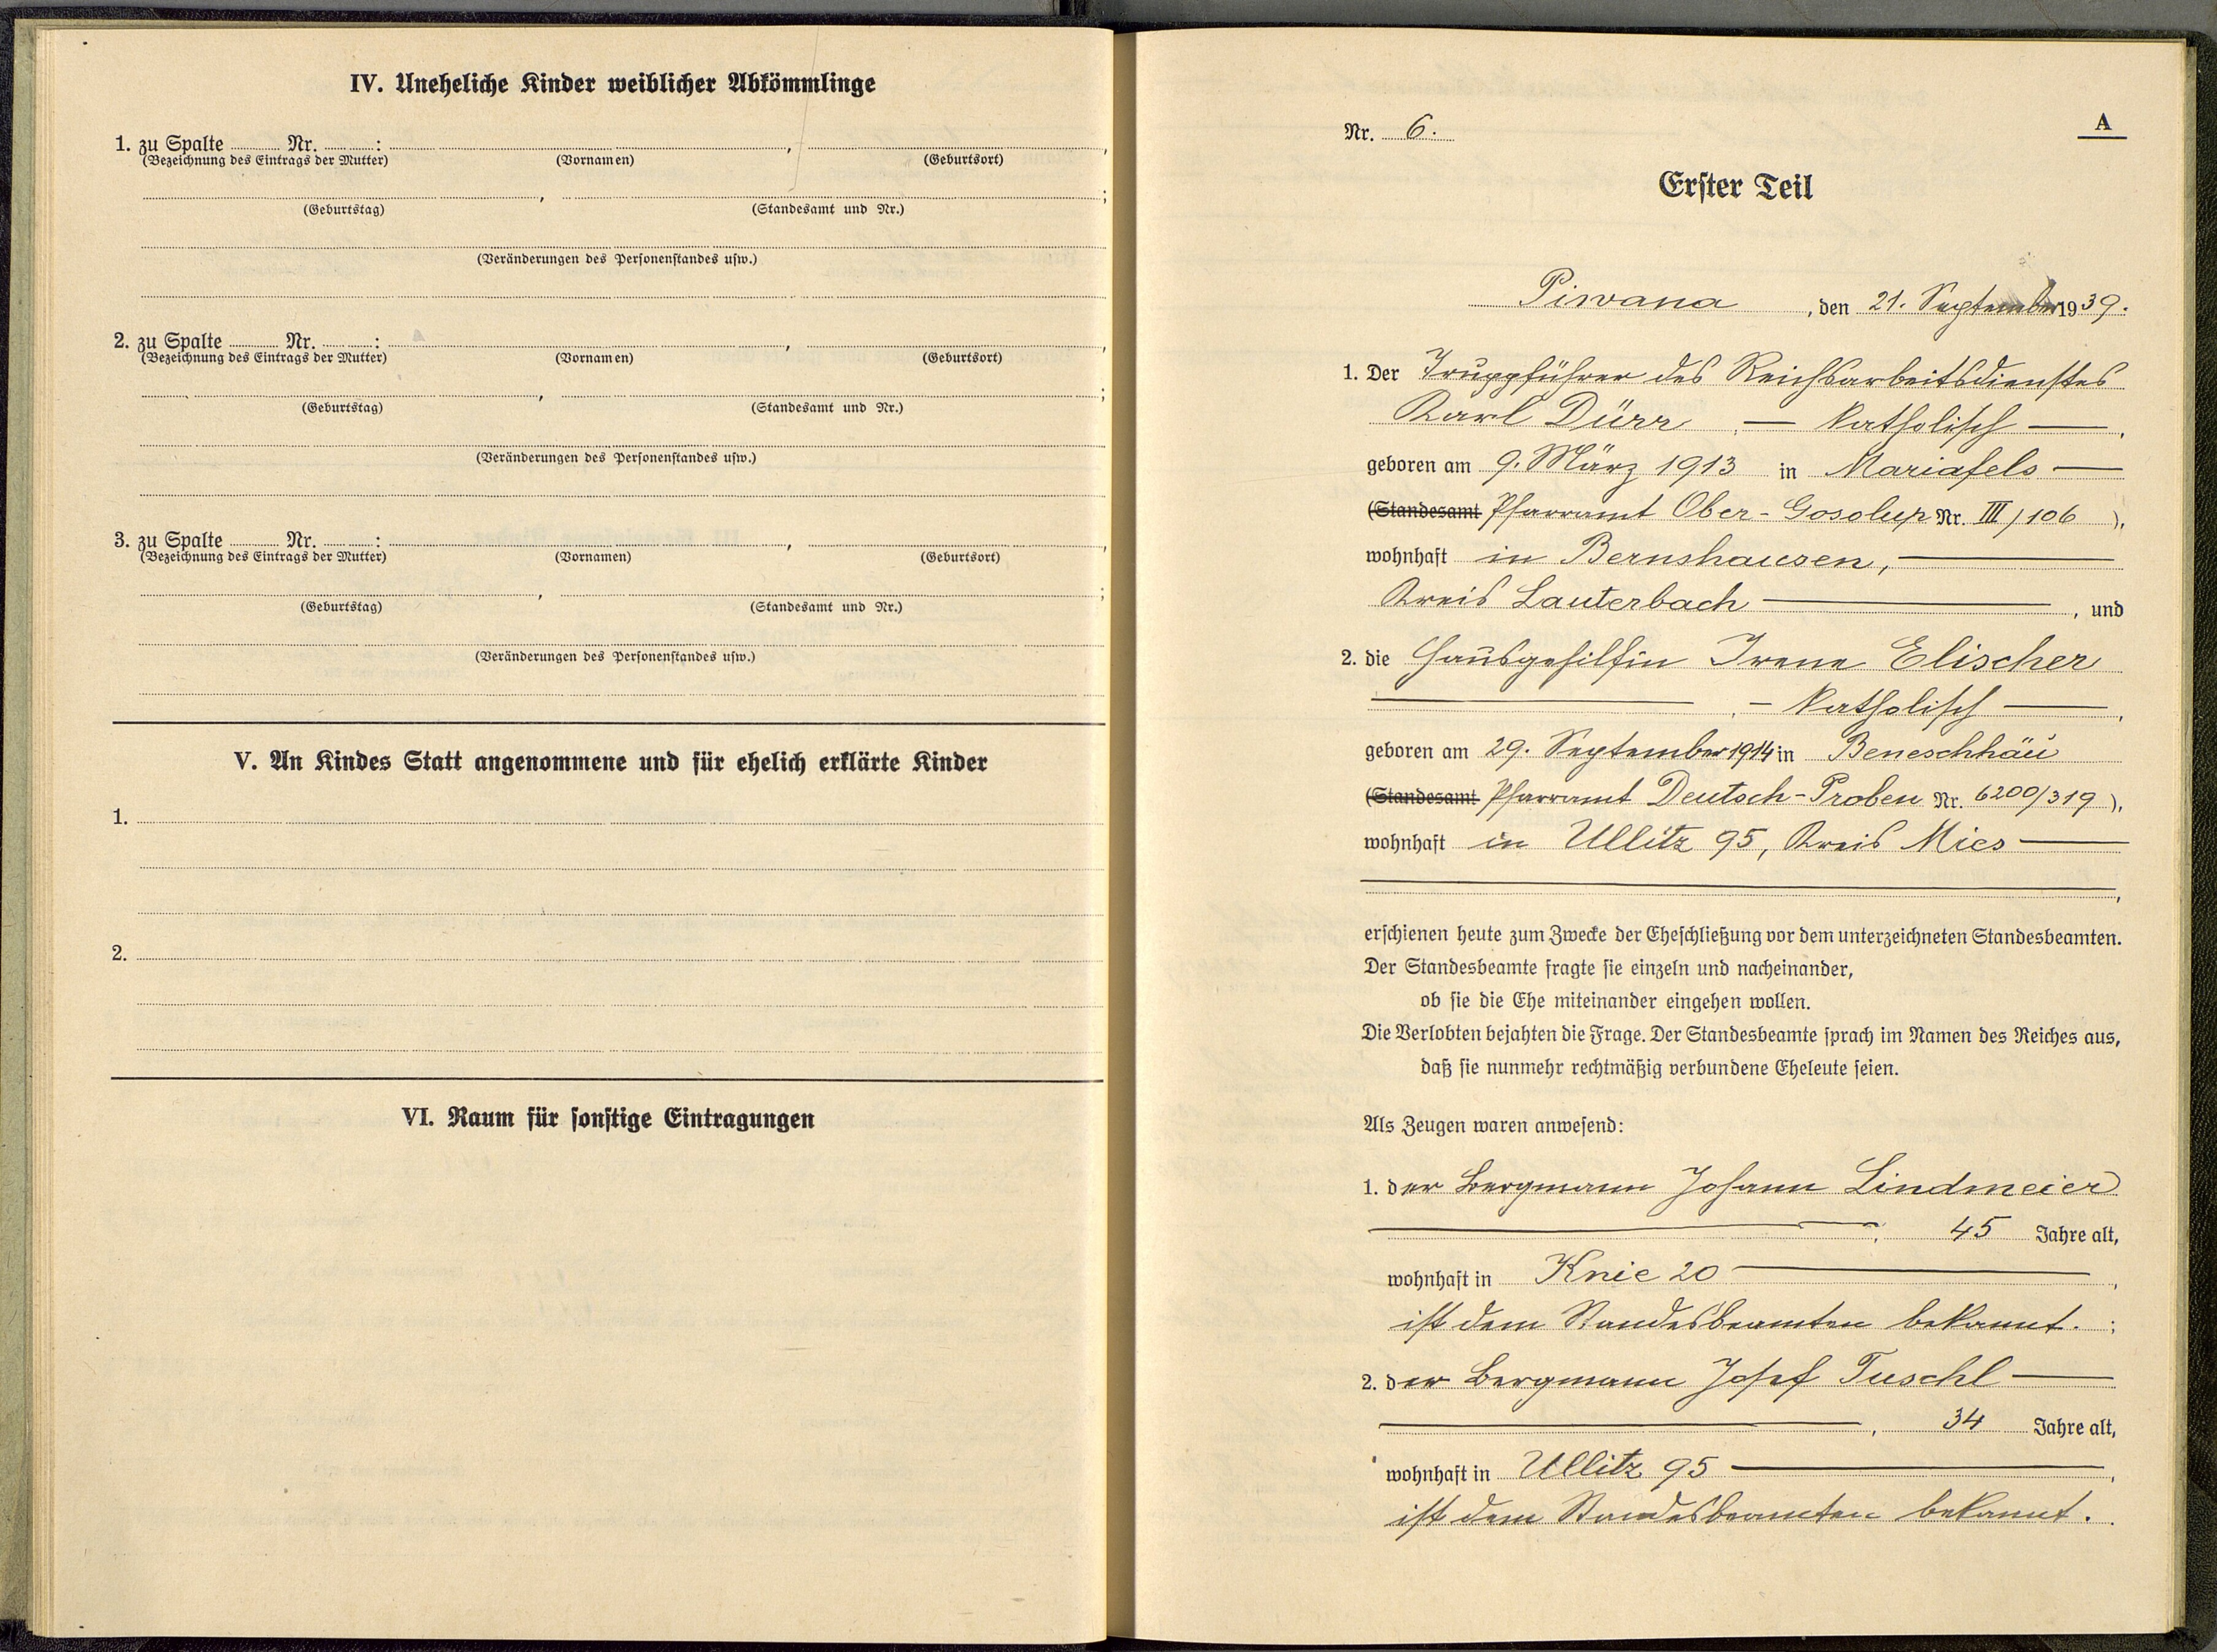 IV. Uneheliche Kinder weiblicher Abkömmlinge
1. zu Spalte ........ Nr. ........: ........, ........,
(Bezeichnung des Eintrags der Mutter) (Vornamen) (Geburtsort)
........, ........;
(Geburtstag) (Standesamt und Nr.)
(Veränderungen des Personenstandes usw.)
2. zu Spalte ........ Nr. ........: ........, ........,
(Bezeichnung des Eintrags der Mutter) (Vornamen) (Geburtsort)
........, ........;
(Geburtstag) (Standesamt und Nr.)
(Veränderungen des Personenstandes usw.)
3. zu Spalte ........ Nr. ........: ........, ........,
(Bezeichnung des Eintrags der Mutter) (Vornamen) (Geburtsort)
........, ........;
(Geburtstag) (Standesamt und Nr.)
(Veränderungen des Personenstandes usw.)
V. An Kindes Statt angenommene und für ehelich erklärte Kinder
1.
2.
VI. Raum für sonstige Eintragungen
A
Nr. 6.
Erster Teil
Piwana, den 21. September 1939.
1. Der Truppführer des Reichsarbeitsdienstes
Karl Dürr, — katholisch —,
geboren am 9. März 1913 in Mariafels —
(Standesamt Pfarramt Ober-Gosolup Nr. III/106),
wohnhaft in Bernshausen, —
Kreis Lauterbach —, und
2. die Hausgehilfin Irene Elischer
—, — katholisch —,
geboren am 29. September 1914 in Beneschhäu
(Standesamt Pfarramt Deutsch-Proben Nr. 6200/319),
wohnhaft in Ullitz 95, Kreis Mies —
—,
erschienen heute zum Zwecke der Eheschließung vor dem unterzeichneten Standesbeamten.
Der Standesbeamte fragte sie einzeln und nacheinander,
ob sie die Ehe miteinander eingehen wollen.
Die Verlobten bejahten die Frage. Der Standesbeamte sprach im Namen des Reiches aus,
daß sie nunmehr rechtmäßig verbundene Eheleute seien.
Als Zeugen waren anwesend:
1. der Bergmann Johann Lindmeier
—, 45 Jahre alt,
wohnhaft in Knie 20 —,
ist dem Standesbeamten bekannt. ;
2. der Bergmann Josef Tuschl —
—, 34 Jahre alt,
wohnhaft in Ullitz 95 —,
ist dem Standesbeamten bekannt.